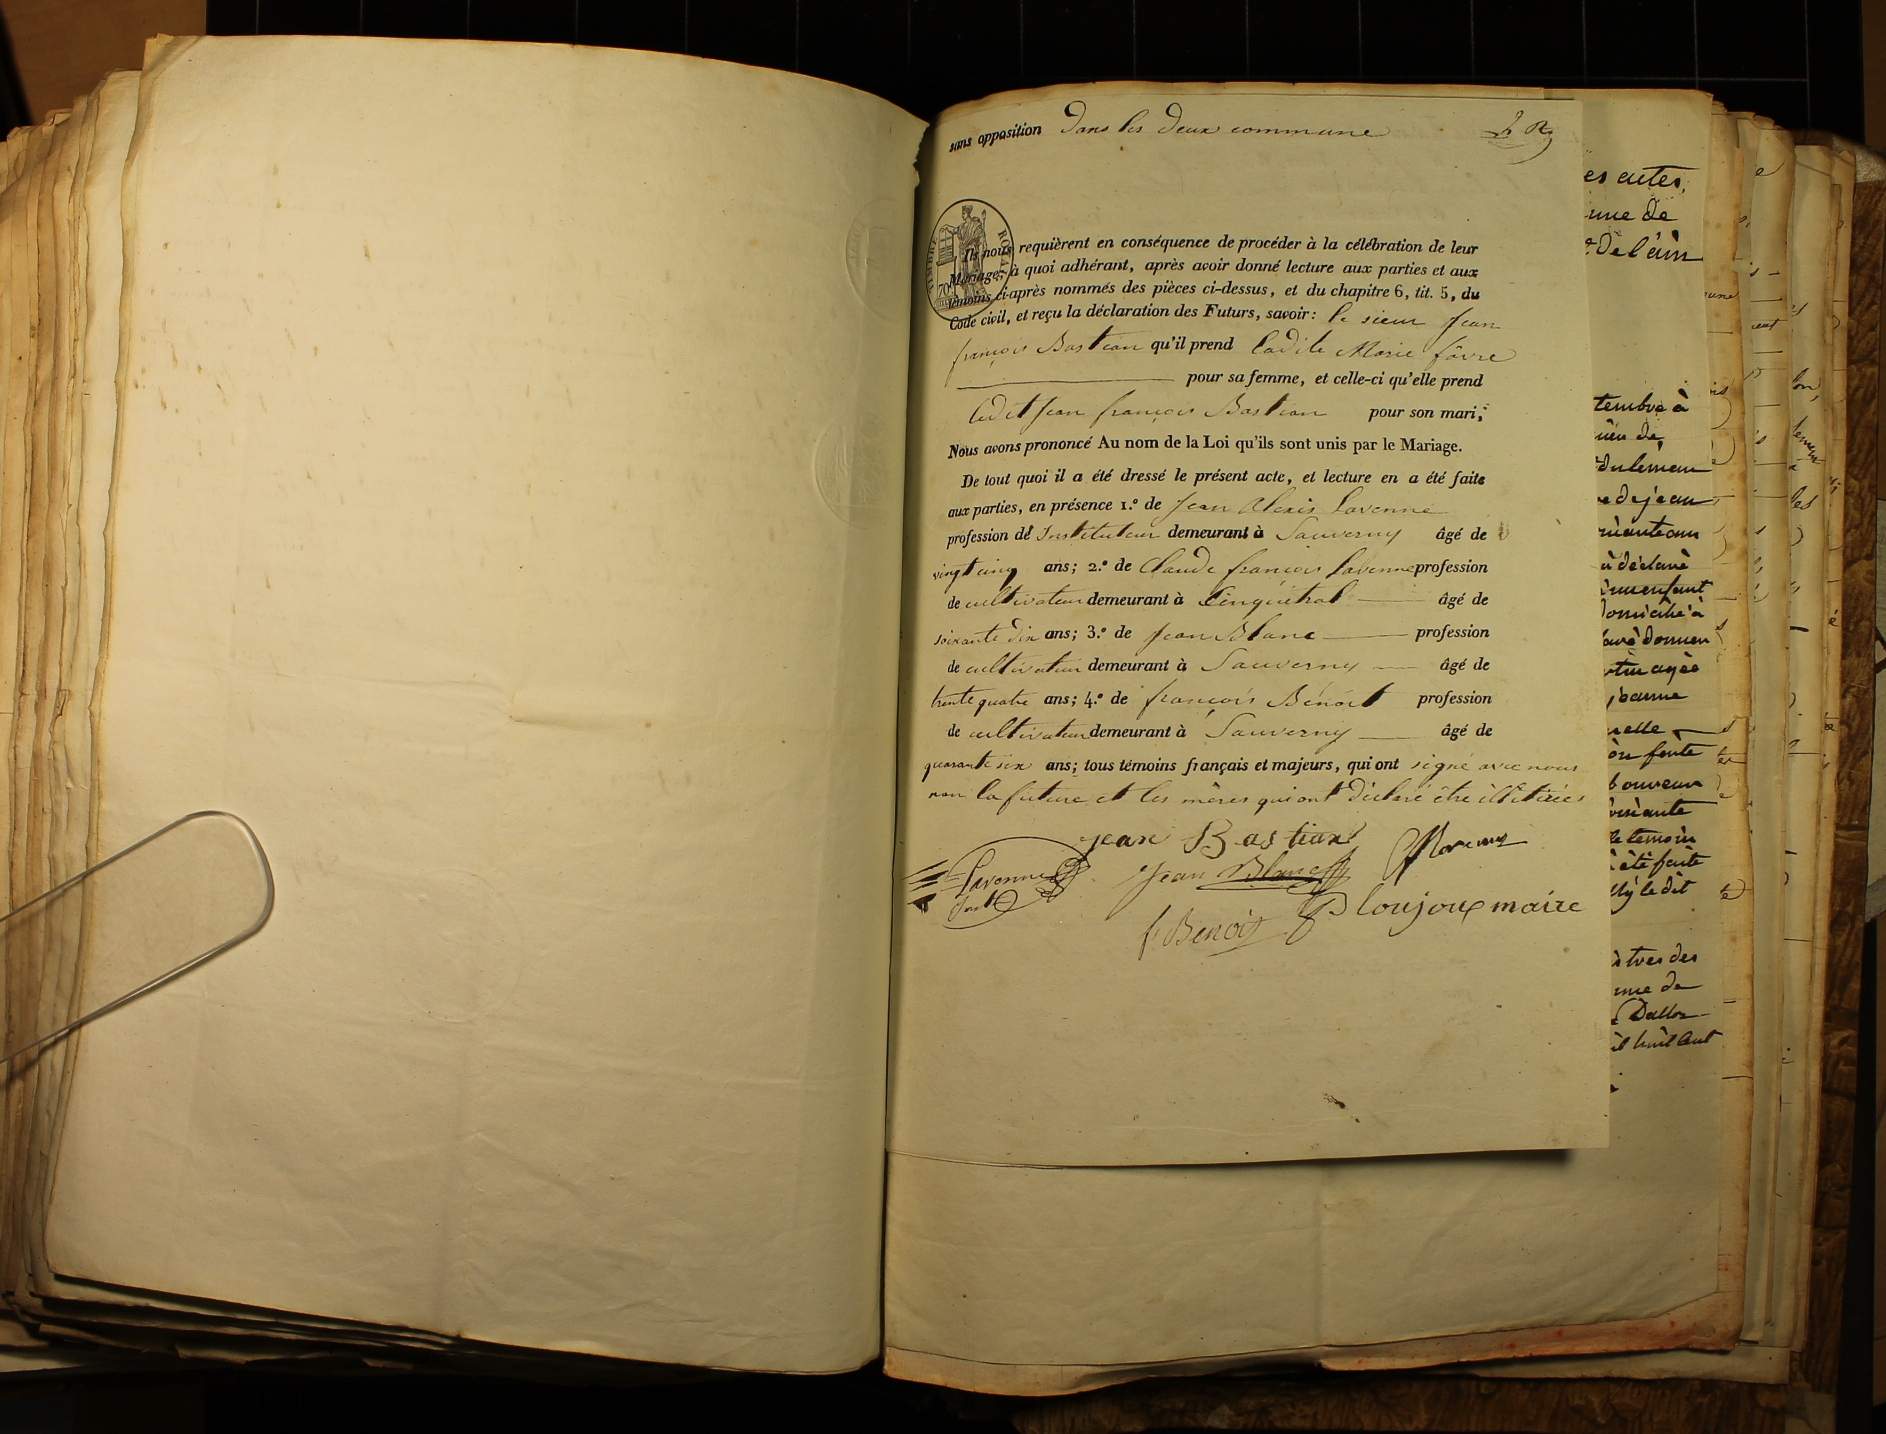 sans opposition dans les deux commune
TIMBRE ROYAL
70
Ils nous requièrent en conséquence de procéder à la célébration de leur
Mariage; à quoi adhérant, après avoir donné lecture aux parties et aux
témoins ci-après nommés des pièces ci-dessus, et du chapitre 6, tit. 5, du
Code civil, et reçu la déclaration des Futurs, savoir: le sieur Jean
françois Bastian qu'il prend ladite Marie fâvre
pour sa femme, et celle-ci qu'elle prend
ledit Jean françois Bastian pour son mari;
Nous avons prononcé Au nom de la Loi qu'ils sont unis par le Mariage.
De tout quoi il a été dressé le présent acte, et lecture en a été faite
aux parties, en présence 1.º de Jean Alexis Lavenne
profession d' Instituteur demeurant à Sauverny âgé de
vingt cinq ans; 2.º de Claude françois Lavenne profession
de cultivateur demeurant à Cinquétral âgé de
soixante dix ans; 3.º de Jean Blanc profession
de cultivateur demeurant à Sauverny âgé de
trente quatre ans; 4.º de françois Bénoit profession
de cultivateur demeurant à Sauverny âgé de
quarante six ans; tous témoins français et majeurs, qui ont signé avec nous
non la future et les mères qui ont déclaré être illétirées
jean Bastian
Lavenne Jean Blanc
f Benoit Ploujoux maire
es actes,
une de
de l'ain
tembre à
du leman
de jean
à déclaré
domicilié à
avè donner
agèe
jeanne
nelle
fente
le temoin
été faite
le dit
tres des
me de